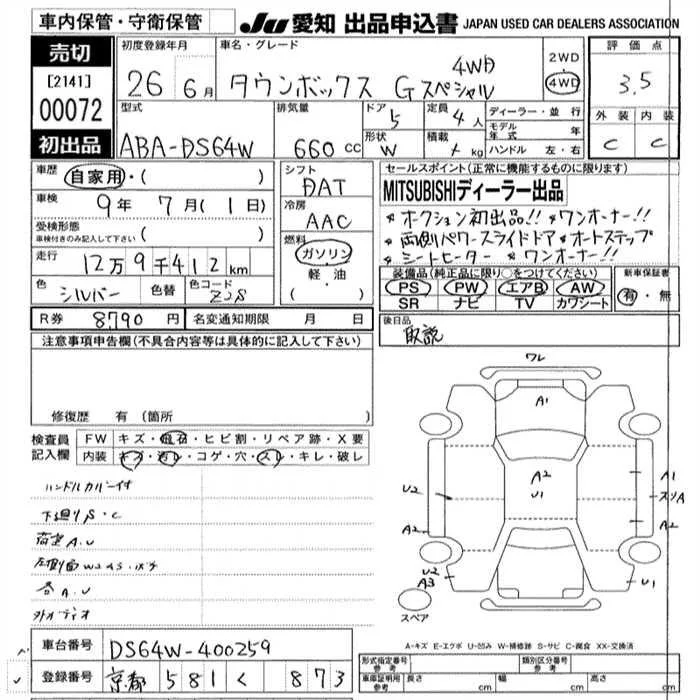 車内保管・守衛保管
JU 愛知 出品申込書 JAPAN USED CAR DEALERS ASSOCIATION
売切
[2141]
00072
初出品
初度登録年月
26 6月
車名・グレード
タウンボックス Gスペシャル 4WD
2WD
4WD
評価点
3.5
外装 内装
C C
型式
ABA-DS64W
排気量
660 CC
ドア 5
形状 W
定員 4人
積載 kg
ディーラー・並行
モデル年式 年
ハンドル 左・右
車歴
自家用・( )
車検
9年 7月(1日)
受検形態
車検付きのみ記入して下さい ( )
走行
12万9千412km
色
シルバー
色替
色コード
Z2S
シフト
DAT
冷房
AAC
燃料
ガソリン
軽油
( ・ )
セールスポイント(正常に機能するものに限ります)
MITSUBISHIディーラー出品
*オークション初出品!! *ワンオーナー!!
*両側パワースライドドア *オートステップ
*シートヒーター *ワンオーナー!!
装備品(純正品に限り○をつけてください)
PS PW エアB AW
SR ナビ TV カワシート
新車保証書
有・無
R券 8790円 名変通知期限 月 日
後日品
取説
注意事項申告欄(不具合内容等は具体的に記入して下さい)
修復歴 有(箇所 )
検査員記入欄
FW キズ・飛石・ヒビ割・リペア跡・X要
内装 キズ・汚レ・コゲ・穴・スレ・キレ・破レ
ハンドルカバー付
下廻りS・C
A.U
A.U
ワレ
A1
A2
U1
U2
A2
U2
A3
A1
スリA
A2
U1
スペア
A-キズ E-エクボ U-凹み W-補修跡 S-サビ C-腐食 XX-交換済
車台番号 DS64W-400259
登録番号 京都 581 く 873
形式指定番号 参考
類別区分番号 参考
車庫証明 参考 長さ cm 幅 cm 高さ cm